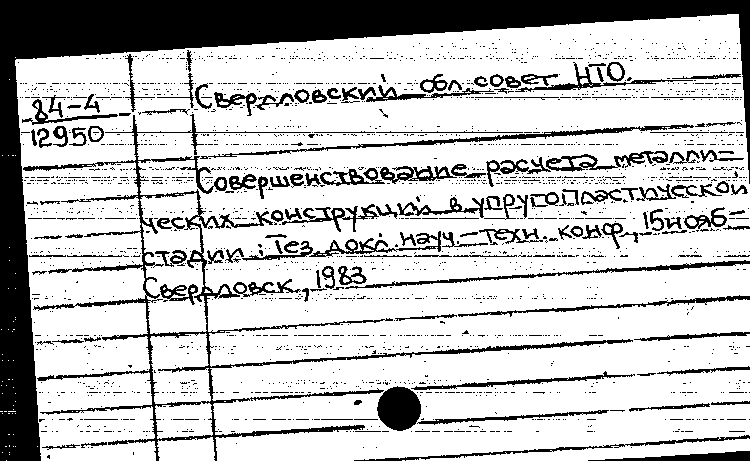 84-4
12950
Свердловский обл. совет НТО.
Совершенствование расчета металли-
ческих конструкций в упругопластической
стадии: Тез. докл. науч.-техн. конф., 15 нояб-
Свердловск., 1983